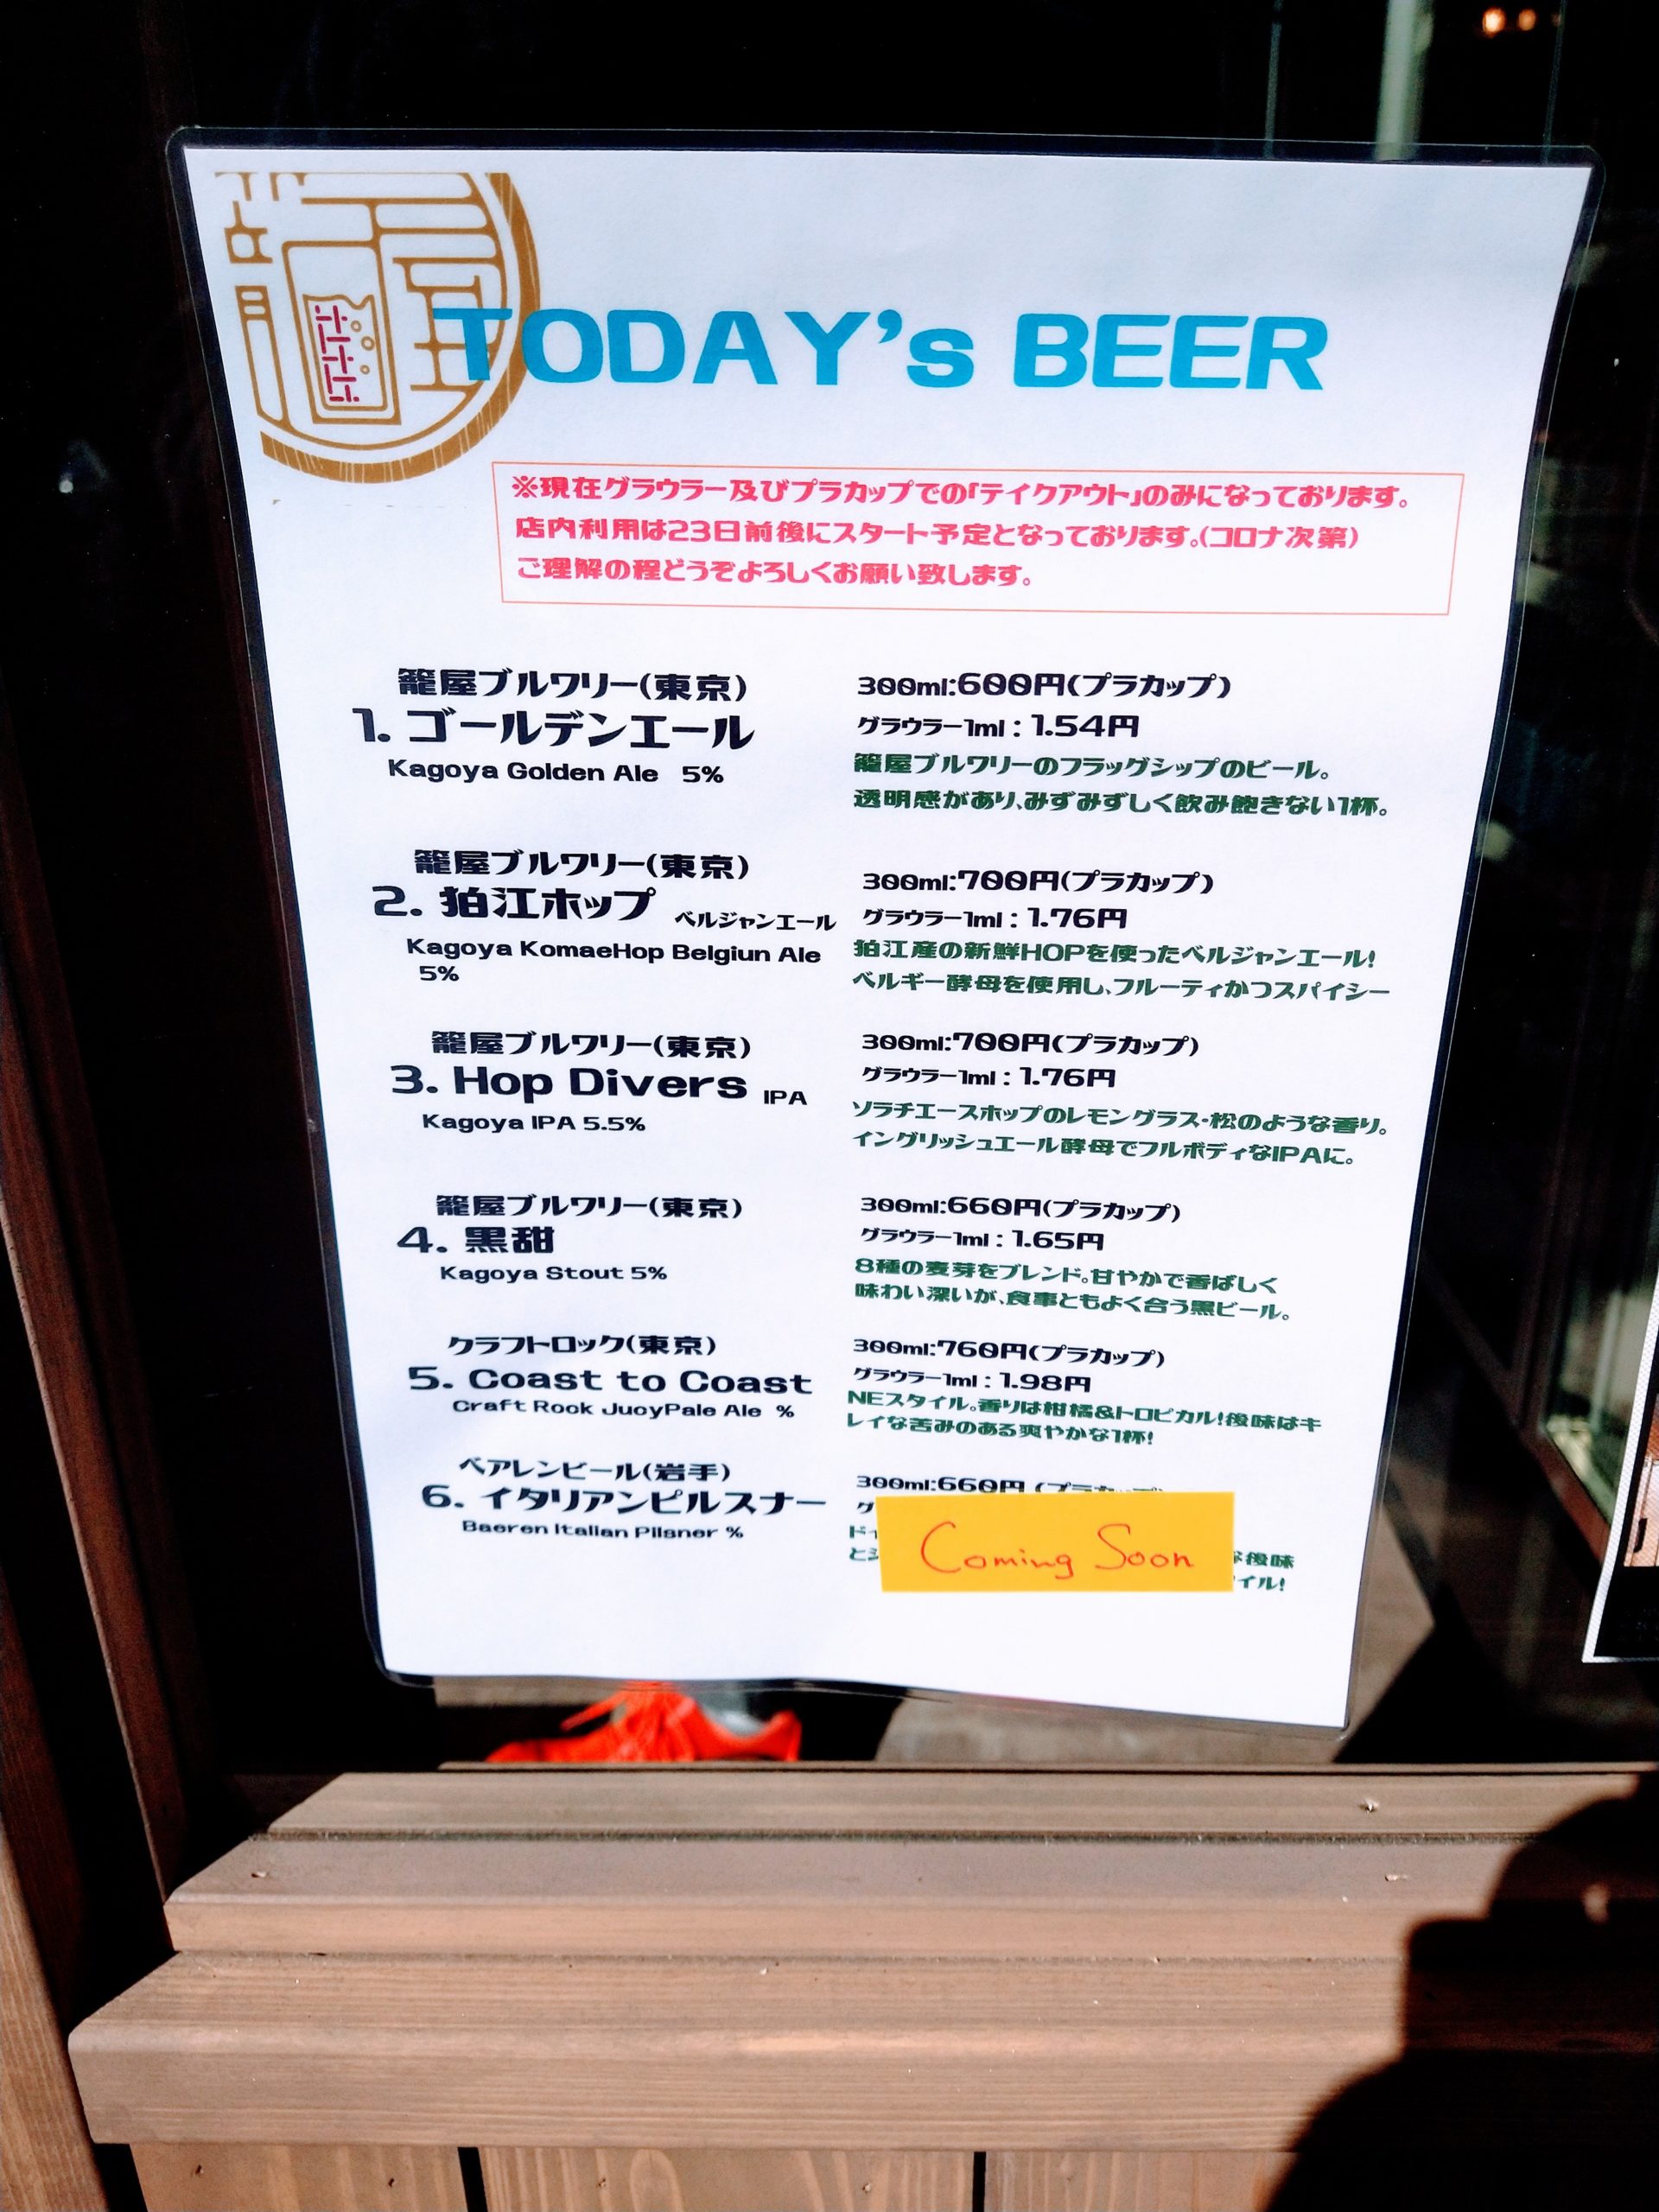 TODAY's BEER
※現在グラウラー及びプラカップでの「テイクアウト」のみになっております。
店内利用は23日前後にスタート予定となっております。(コロナ次第)
ご理解の程どうぞよろしくお願い致します。
籠屋ブルワリー(東京)
1. ゴールデンエール
Kagoya Golden Ale 5%
300ml:600円(プラカップ)
グラウラー1ml : 1.54円
籠屋ブルワリーのフラッグシップのビール。
透明感があり、みずみずしく飲み飽きない1杯。
籠屋ブルワリー(東京)
2. 狛江ホップ ベルジャンエール
Kagoya KomaeHop Belgiun Ale
5%
300ml:700円(プラカップ)
グラウラー1ml : 1.76円
狛江産の新鮮HOPを使ったベルジャンエール!
ベルギー酵母を使用し、フルーティかつスパイシー
籠屋ブルワリー(東京)
3. Hop Divers IPA
Kagoya IPA 5.5%
300ml:700円(プラカップ)
グラウラー1ml : 1.76円
ソラチエースホップのレモングラス・松のような香り。
イングリッシュエール酵母でフルボディなIPAに。
籠屋ブルワリー(東京)
4. 黒甜
Kagoya Stout 5%
300ml:660円(プラカップ)
グラウラー1ml : 1.65円
8種の麦芽をブレンド。甘やかで香ばしく
味わい深いが、食事ともよく合う黒ビール。
クラフトロック(東京)
5. Coast to Coast
Craft Rook JucyPale Ale %
300ml:760円(プラカップ)
グラウラー1ml : 1.98円
NEスタイル。香りは柑橘&トロピカル!後味はキ
レイな苦みのある爽やかな1杯!
ベアレンビール(岩手)
6. イタリアンピルスナー
Baeren Italian Pilsner %
300ml:660円(プラカップ)
Coming Soon
後味
イル!